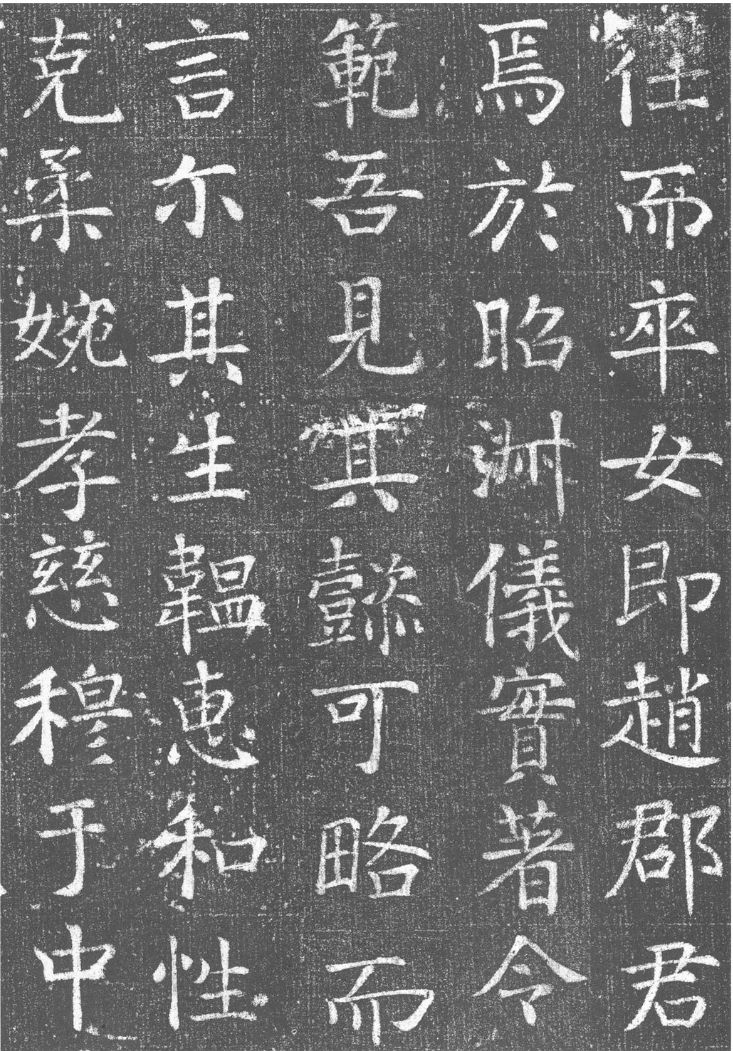 往而卒女即趙郡君
焉於昭儀實著令
範吾見其懿可略而
言尒其生韞恵和性
克柔婉孝慈穆于中